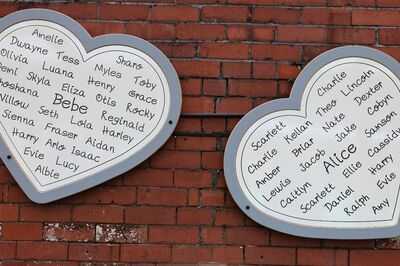 Amelie
Dwayne Tess Sharo
Olivia Luana Myles Toby
Skyla Eliza Henry Grace
Bebe Otis Rocky
Seth Lola Reginald
Sienna Fraser Aidan Harley
Harry Arlo Isaac
Evie Lucy
Albie
Charlie Lincoln
Scarlett Kellan Theo Dexter
Charlie Briar Nate Cobyn
Amber Jacob Jake Samson
Lewis Alice Cassidy
Caitlyn Ellie Harry
Scarlett Daniel Evie
Ralph Amy